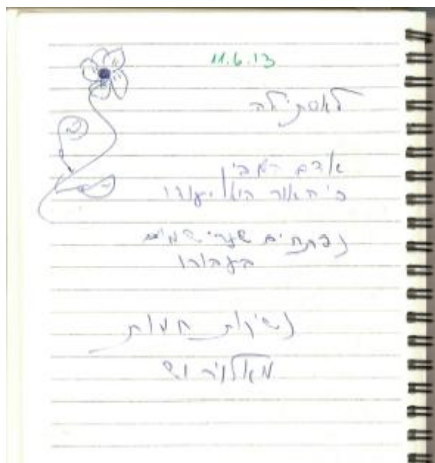 11.6.13
לאסתילה
אדם
כי האור הוא יעודו
נפתחים שערי שמים
בעבורו
נשיקות חמות